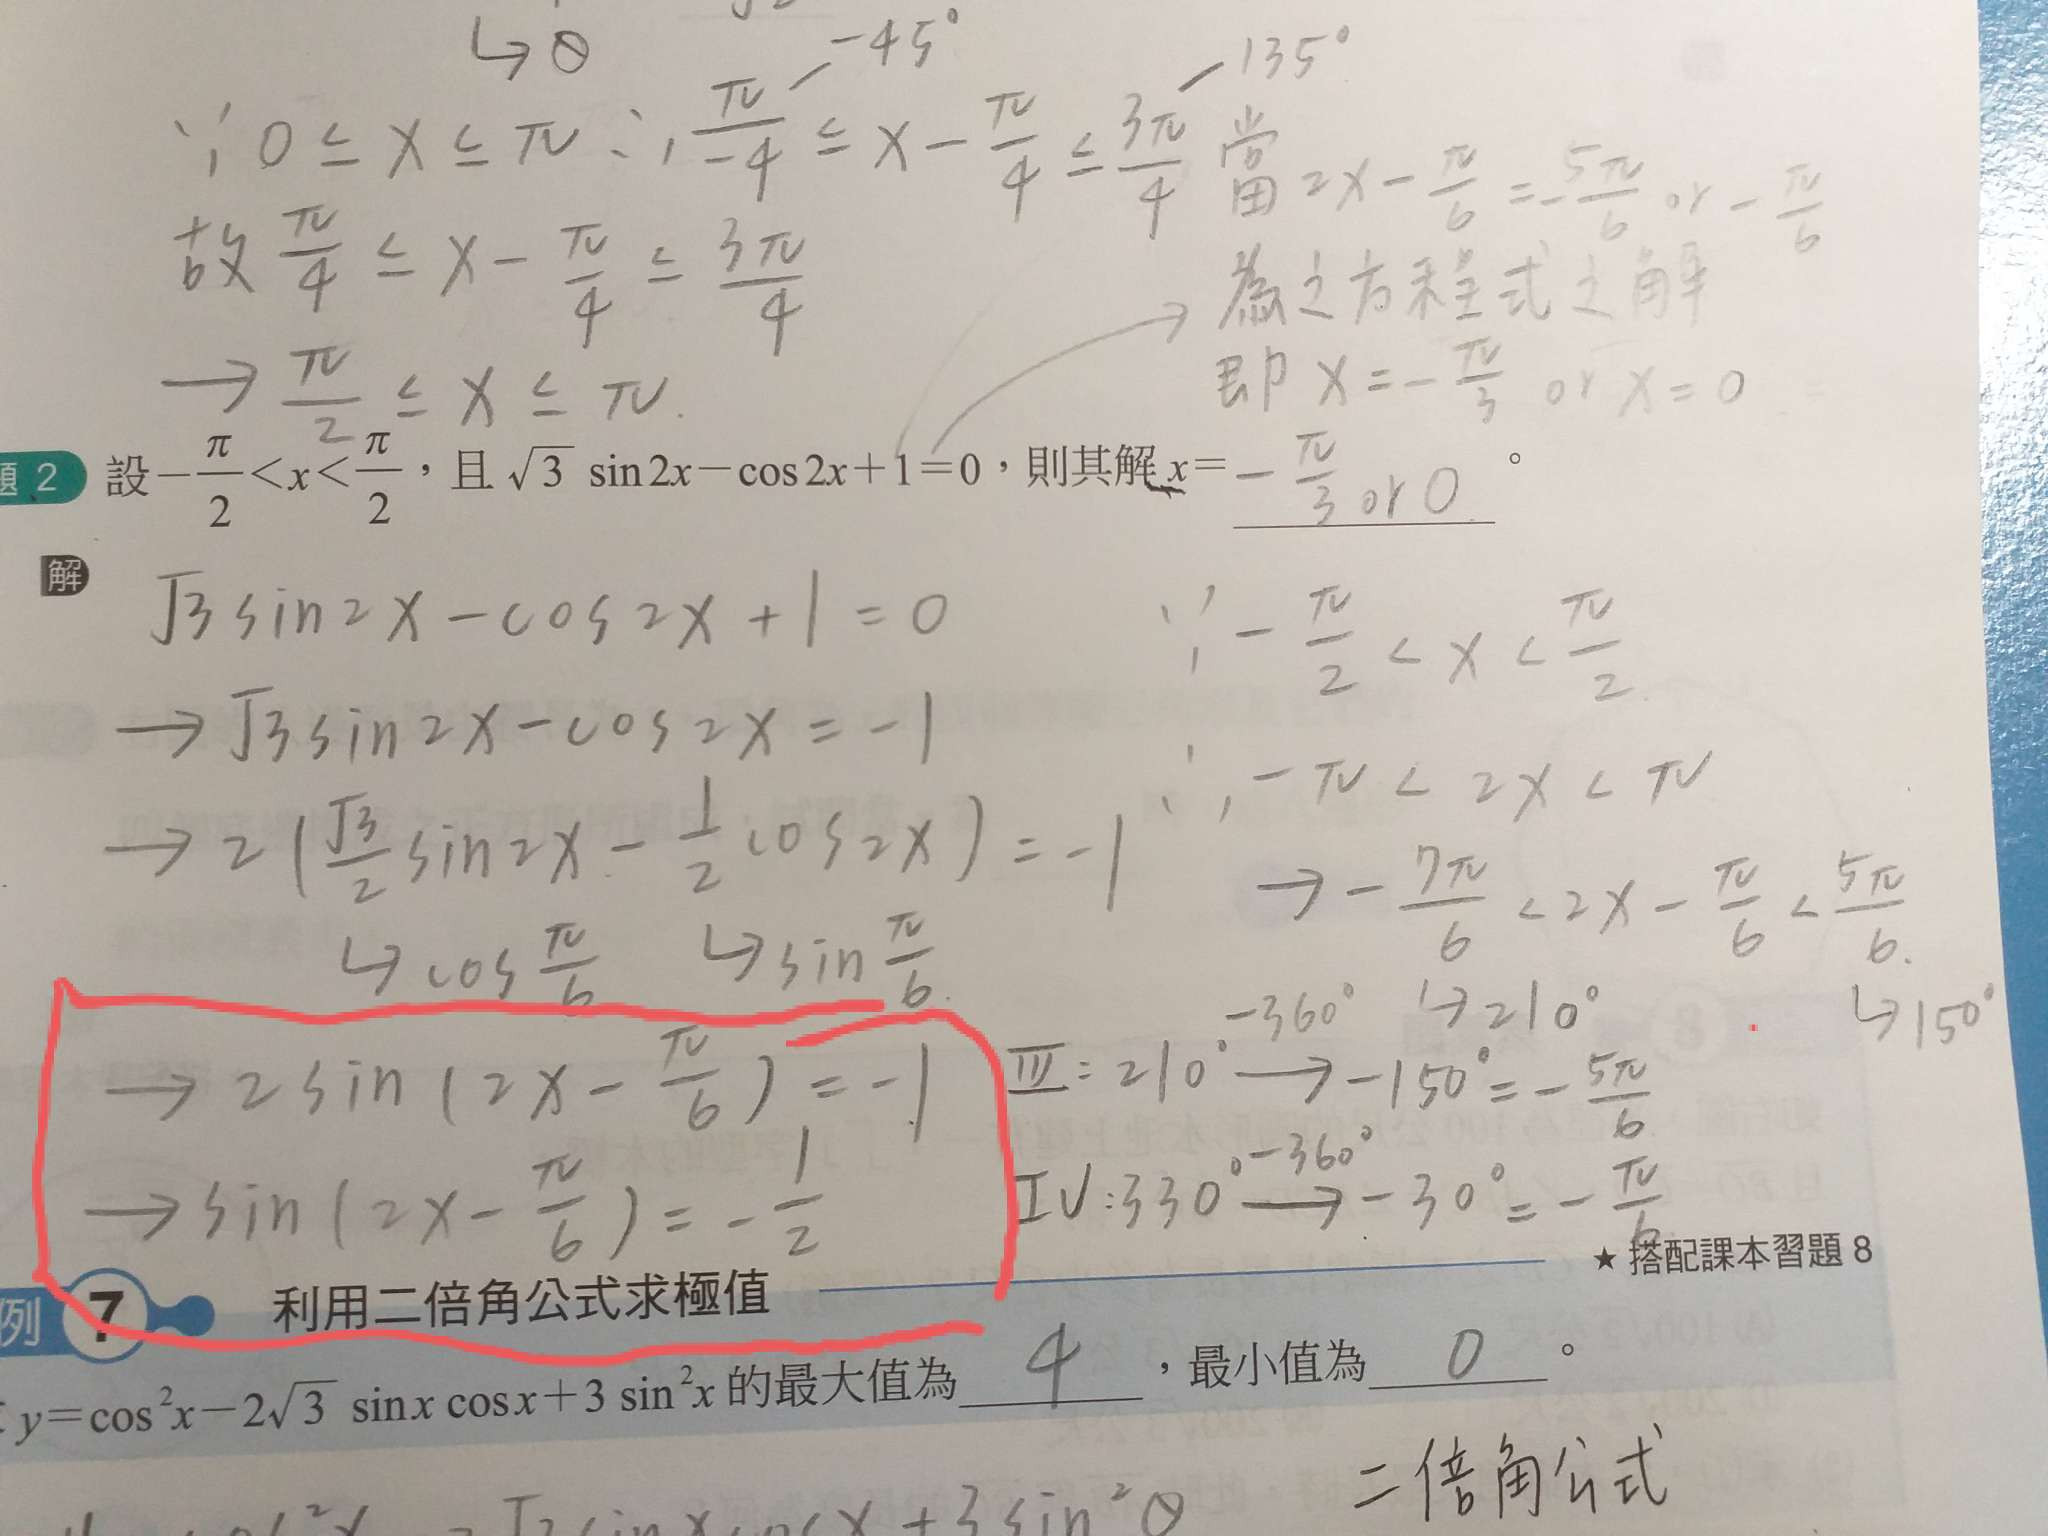 ↳θ
-45°
-135°
∵ 0 ≤ x ≤ π ∴ π/-4 ≤ x - π/4 ≤ 3π/4
故 π/4 ≤ x - π/4 ≤ 3π/4
→ π/2 ≤ x ≤ π.
當 2x - π/6 = -5π/6 or -π/6
為之方程式之解
即 x = -π/3 or x = 0
題 2 設 -π/2 < x < π/2，且 √3 sin2x - cos2x + 1 = 0，則其解 x = -π/3 or 0 。
解
√3 sin2x - cos2x + 1 = 0
→ √3 sin2x - cos2x = -1
→ 2(√3/2 sin2x - 1/2 cos2x) = -1
↳cos π/6 ↳sin π/6.
→ 2sin(2x - π/6) = -1
→ sin(2x - π/6) = -1/2
∵ -π/2 < x < π/2
∴ -π < 2x < π
→ -7π/6 < 2x - π/6 < 5π/6.
↳210° ↳150°
III: 210° -360°→ -150° = -5π/6
IV: 330° -360°→ -30° = -π/6
★ 搭配課本習題 8
例 7 利用二倍角公式求極值
y = cos²x - 2√3 sinx cosx + 3 sin²x 的最大值為 4 ，最小值為 0 。
二倍角公式